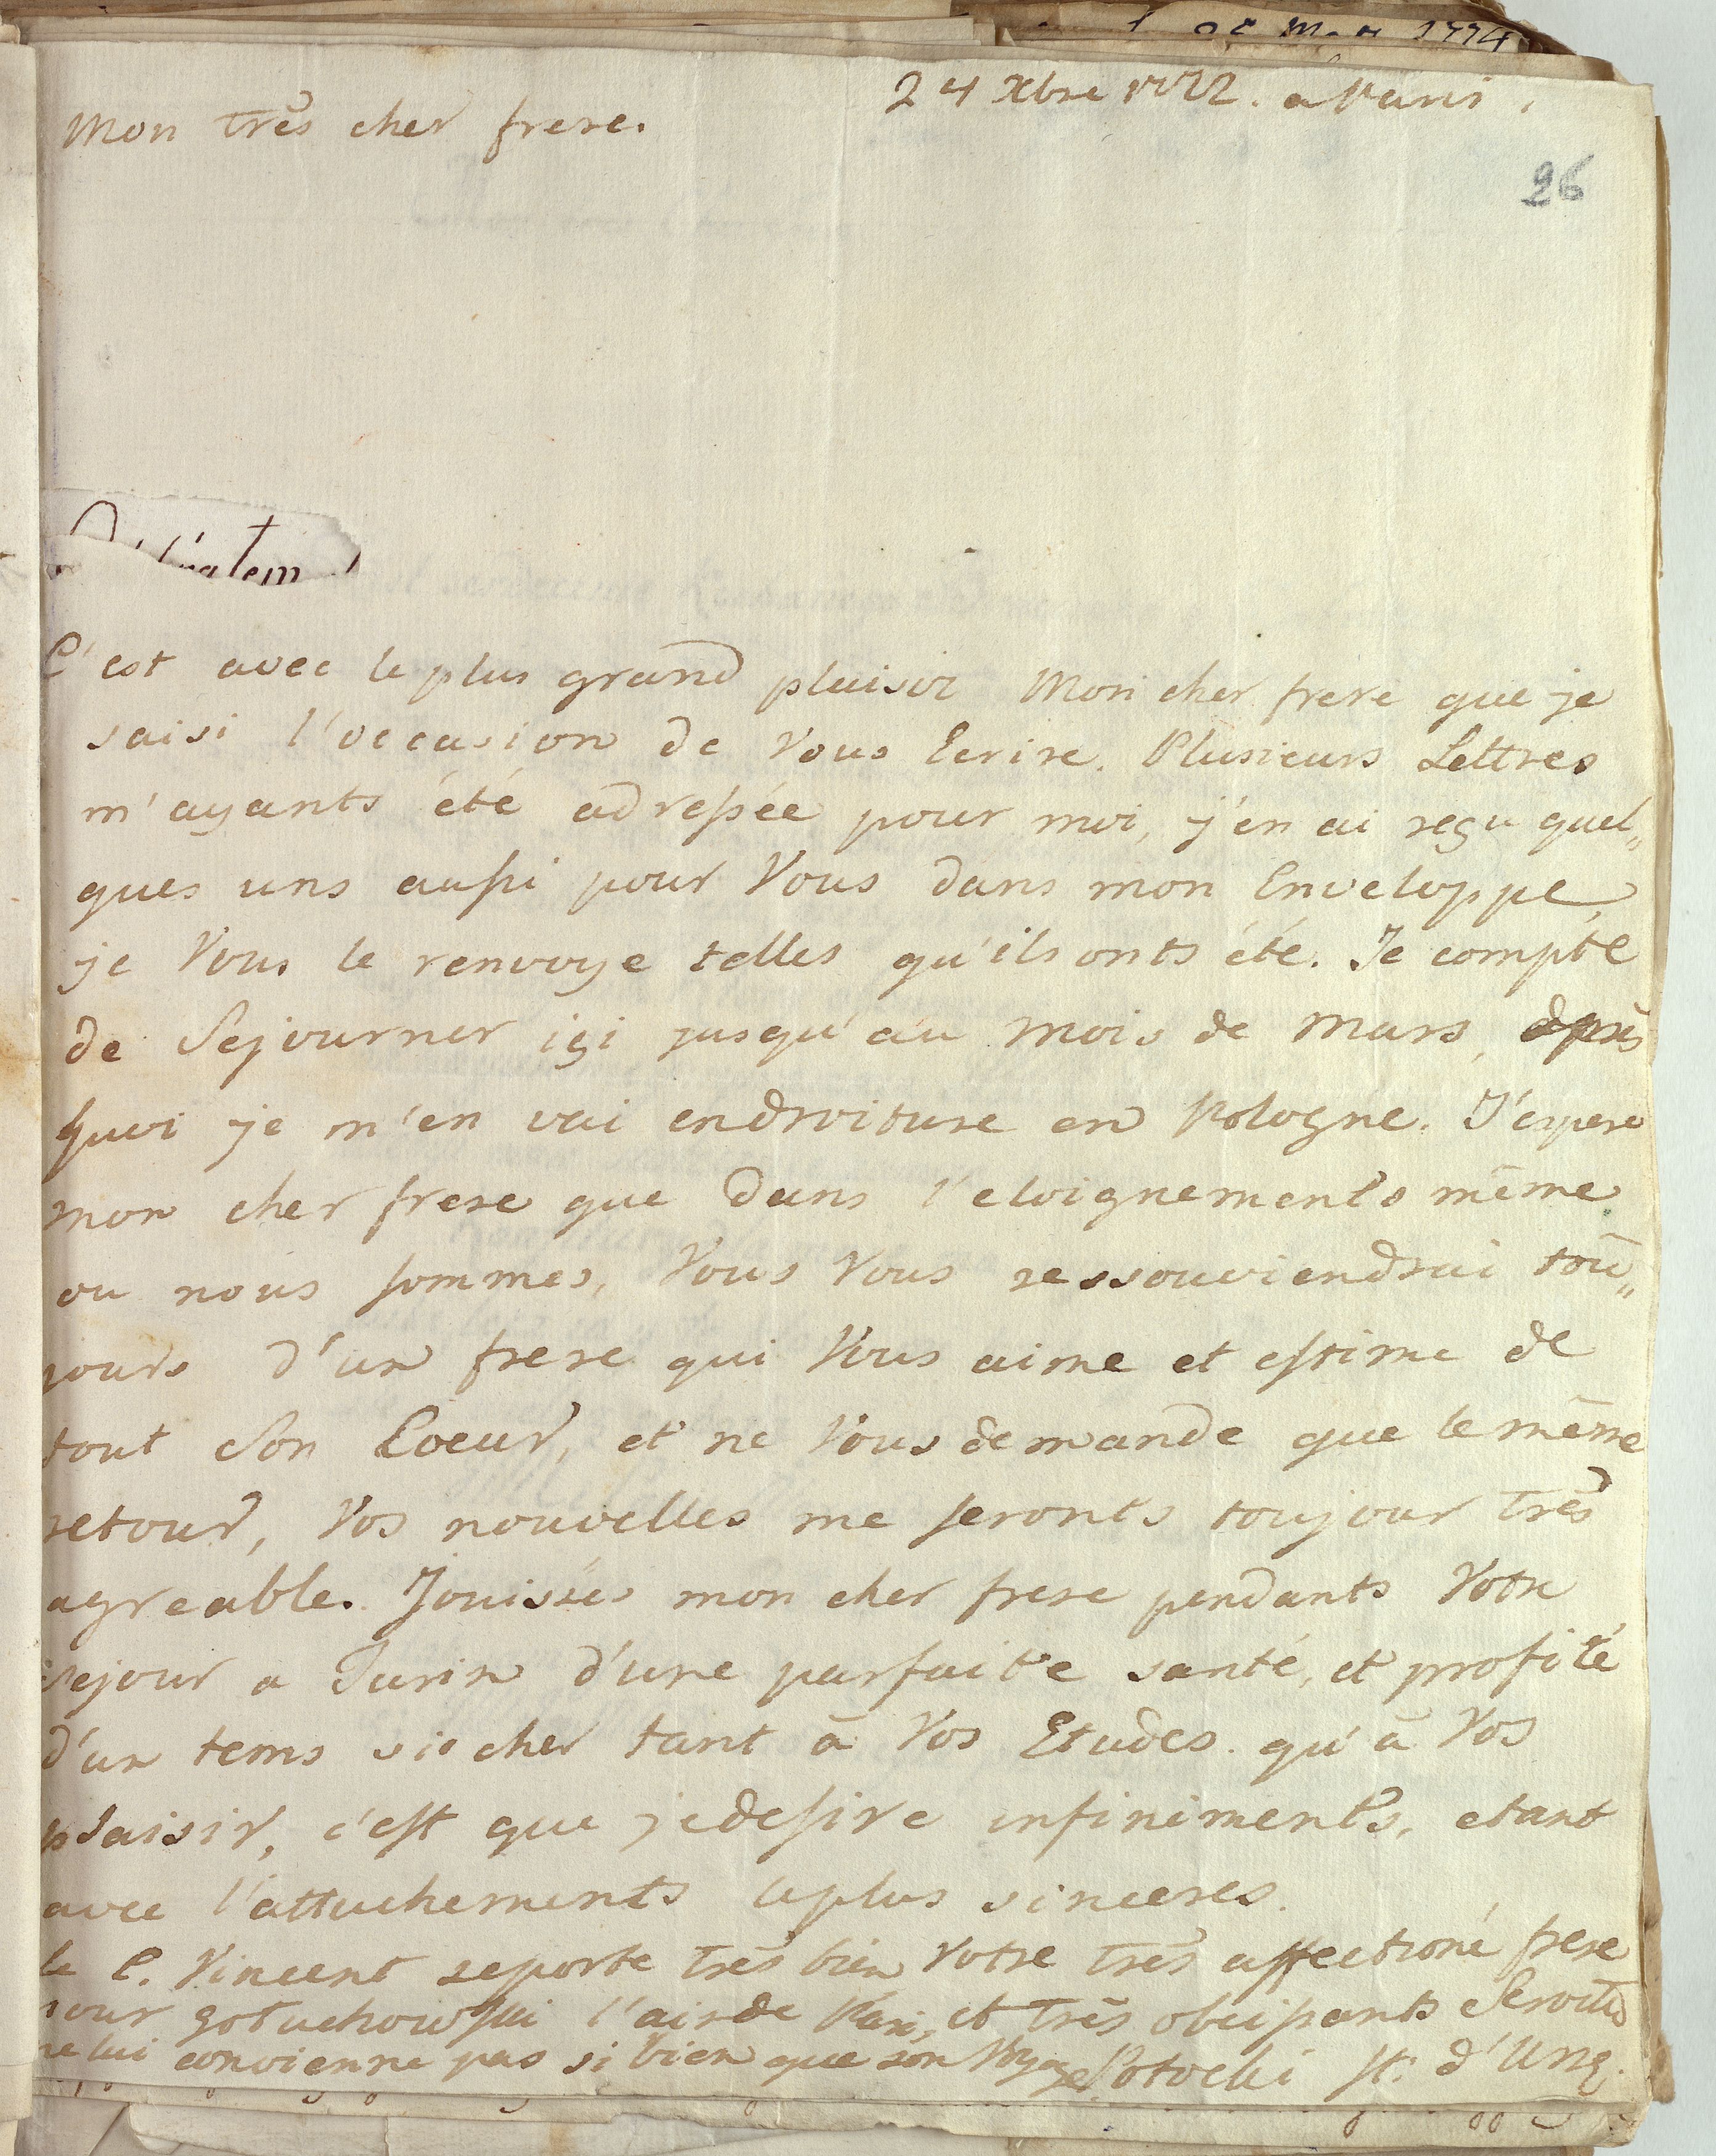 24 Xbre 1772. a Paris.
Mon très cher frere.
26
C'est avec le plus grand plaisir Mon cher frere que je
saisi l'occasion de Vous Ecrire. Plusieurs Lettres
m'ayants été adressée pour moi, j'en ai reçu quel„
ques uns aussi pour Vous dans mon Enveloppe,
je Vous le renvoye telles qu'ils onts été. Je compte
de Sejourner içi jusqu'au mois de Mars, après
quoi je m'en vai endroiture en Pologne. J'espere
mon cher frere que dans l'eloignements même
ou nous sommes, Vous Vous ressouviendrai tou„
jours d'un frere qui Vous aime et estime de
tout Son Coeur, et ne Vous demande que le même
retour, Vos nouvelles me seronts toujour très
agreable. Jouissés mon cher frere pendants Votre
sejour a Turin d'une parfaite santé, et profité
d'un tems si cher tant à Vos Etudes qu'à Vos
plaisir, c'est que je desire infiniments, etant
avec l'attachements le plus sinceres.
le C. Vincent se porte très bien Votre très affectioné frere
pour Gołuchowski l'air de Paris, et très obeissants Servite
ne lui convienne pas si bien que son Potocki St. d'